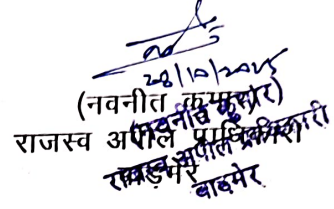 28/10/2025
(नवनीत कुमार)
राजस्व अपील प्राधिकारी
बाड़मेर
(नवनीत कुमार)
राजस्व अपील प्राधिकारी
बाडमेर